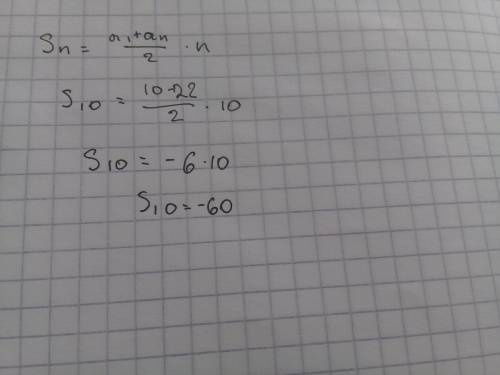 Sn = a₁+an/2 · n
S₁₀ = 10-22/2 · 10
S₁₀ = -6·10
S₁₀=-60